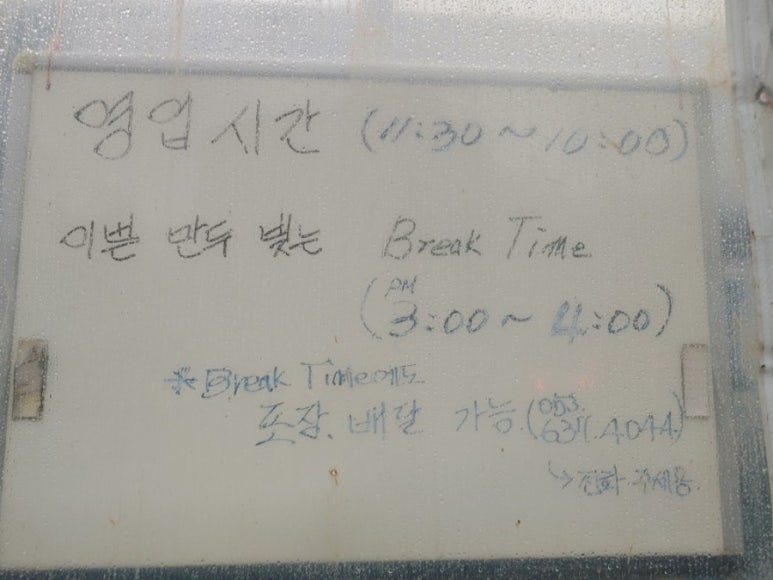 영업시간 (11:30~10:00)
이쁜 만두 빚는 Break Time
(PM 3:00~4:00)
* Break Time에도
포장. 배달 가능.(053. 637.4044)
↳ 전화 주세용.